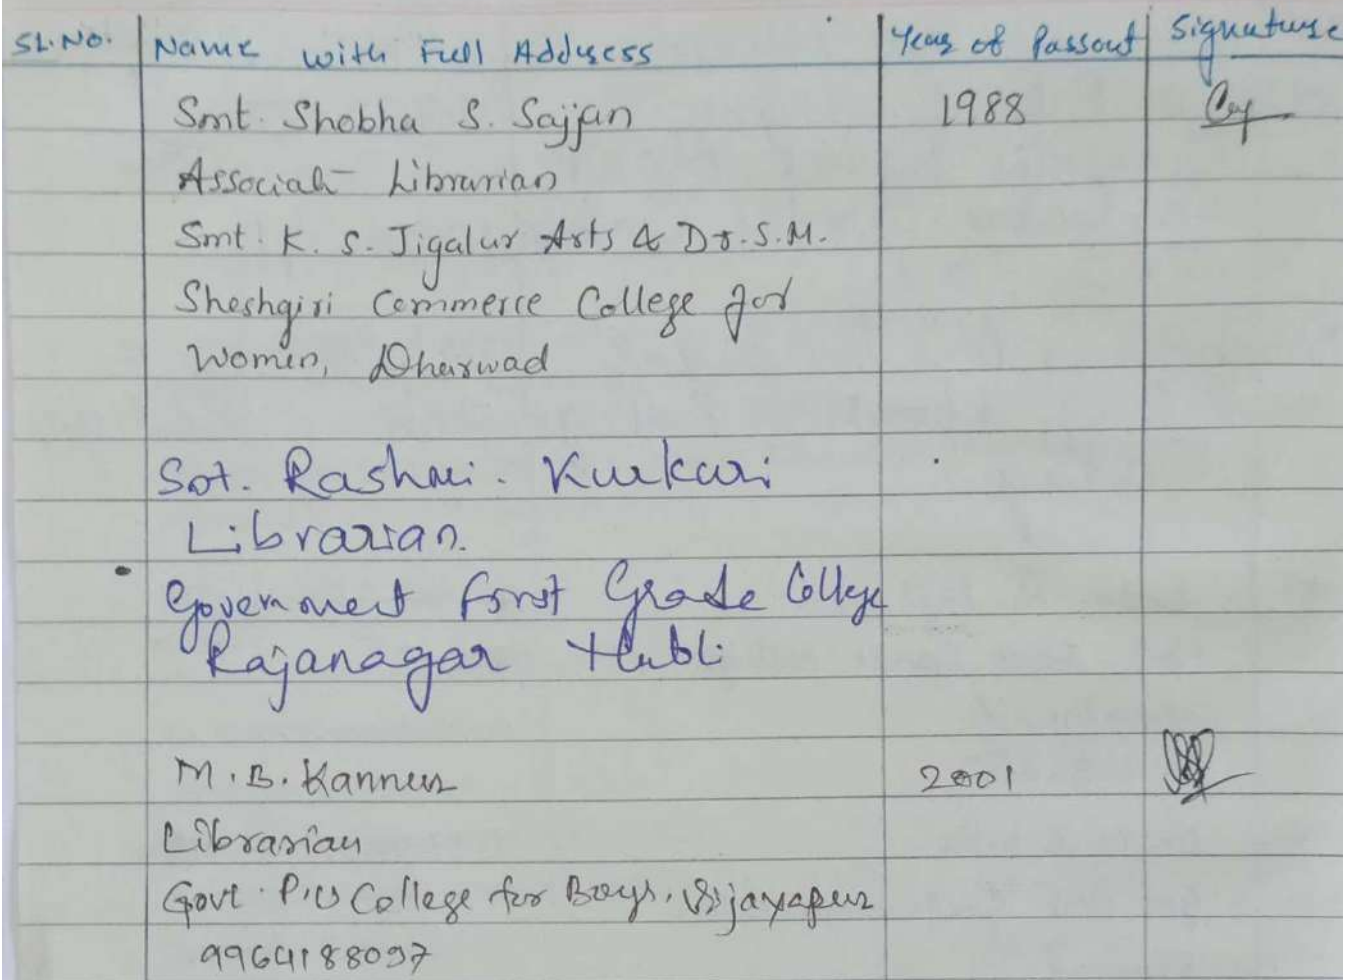 SL.No. Name with Full Address Year of Passout Signature
Smt. Shobha S. Sajjan 1988
Associate Librarian
Smt. K. S. Jigalur Arts & Dr. S.M.
Sheshgiri Commerce College for
Women, Dharwad
Smt. Rashmi. Kulkarni
Librarian.
Government First Grade College
Rajanagar Hubli
M. B. Kannur 2001
Librarian
Govt. P.U College for Boys, Vijayapur
9964188097